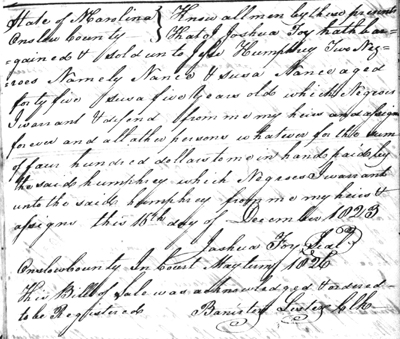 State of N Carolina } Know all men by these presents
Onslow County } that I Joshua Foy hath bar-
-gained & sold unto Jesse Humphrey Two Neg-
roes Namely Nance & Susa Nance aged
forty five Susa five Years old which Negroes
I warrant & defend from me my heirs and assigns
forever and all other persons whatever for the sum
of four hundred dollars to me in hand paid by
the said humphrey which Negroes I warrant
unto the said humphrey from me my heirs &
assigns this 15th day of December 1823
Joshua Foy Seal
Onslow County In Court May term 1826
This Bill of Sale was acknowledged & ordered
to be Registered Banister Lester Clk